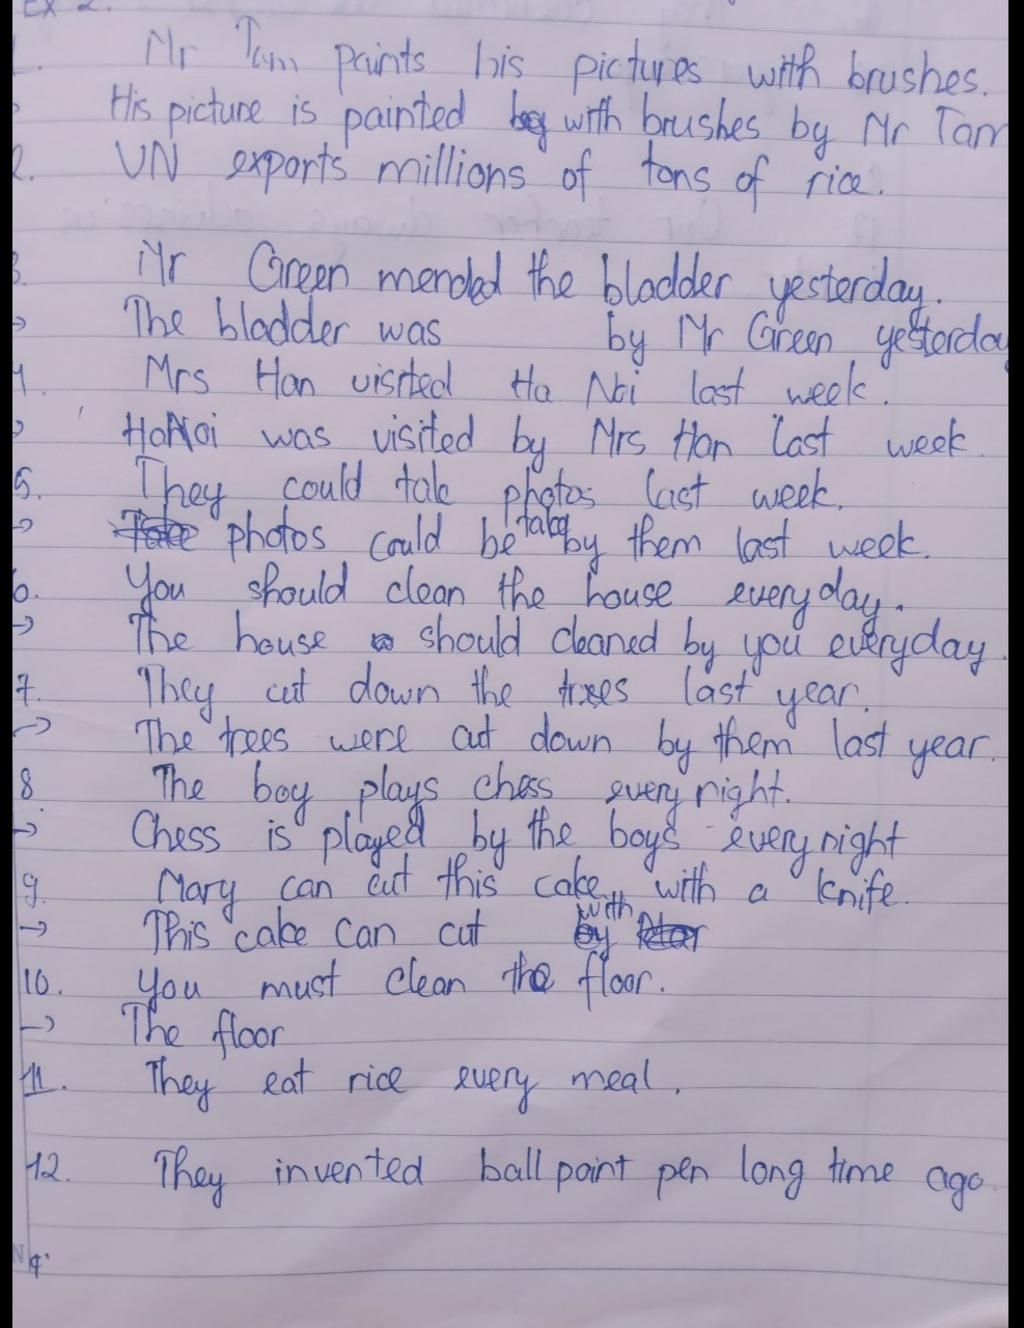 Ex 2.
1. Mr Tam paints his pictures with brushes.
His picture is painted with brushes by Mr Tam
2. VN exports millions of tons of rice.
3. Mr Green mended the bladder yesterday.
→ The bladder was by Mr Green yesterday
4. Mrs Han visited Ha Noi last week.
→ HaNoi was visited by Mrs Han last week.
5. They could take photos last week.
→ photos could be take by them last week.
6. You should clean the house everyday.
→ The house should cleaned by you everyday.
7. They cut down the trees last year.
→ The trees were cut down by them last year.
8 The boy plays chess every night.
→ Chess is played by the boys every night
9. Mary can cut this cake with a knife.
→ This cake can cut with
10. You must clean the floor.
→ The floor
11. They eat rice every meal.
12. They invented ball point pen long time ago.